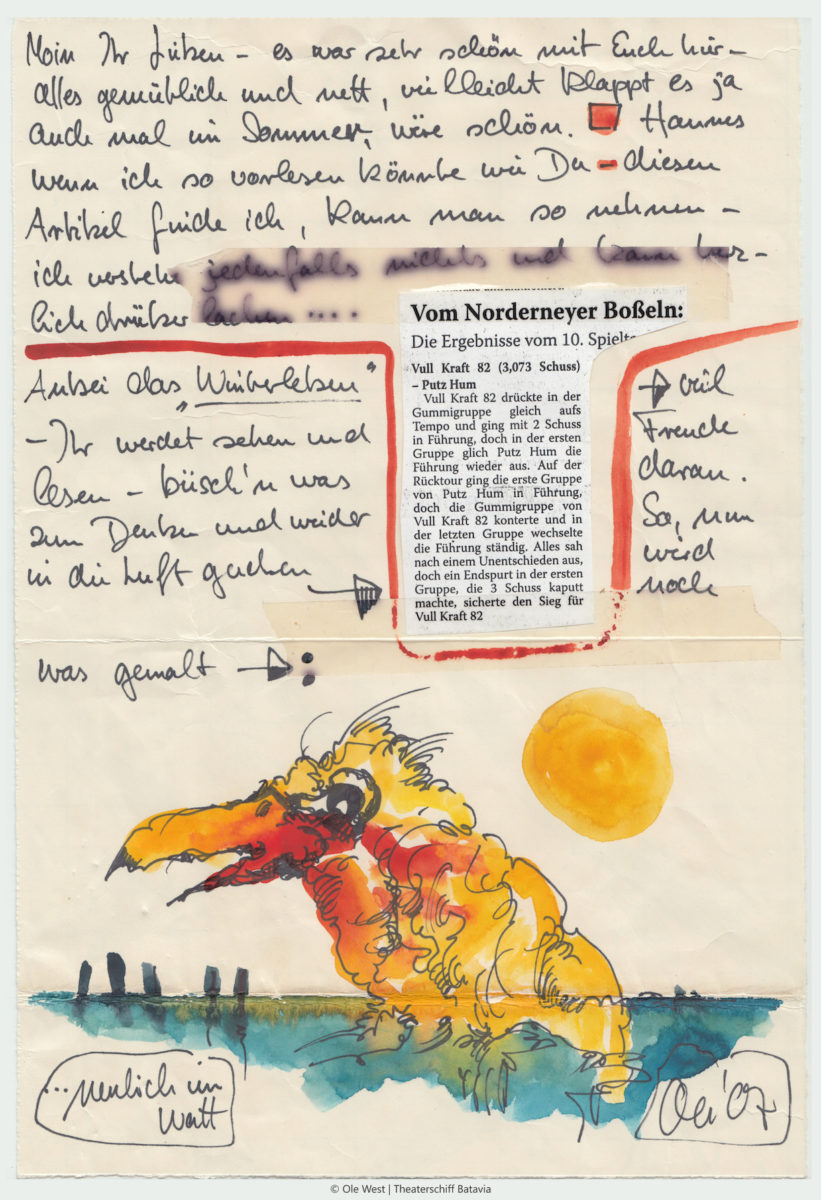 Moin Ihr Lieben – es war sehr schön mit Euch hier –
alles gemütlich und nett, vielleicht klappt es ja
auch mal im Sommer, wäre schön. Hannes
wenn ich so vorlesen könnte wie Du – diesen
Artikel finde ich, kann man so nehmen –
ich verstehe jedenfalls nichts und kann herz-
lich drüber lachen ....
Vom Norderneyer Boßeln:
Die Ergebnisse vom 10. Spielta
Vull Kraft 82 (3,073 Schuss)
– Putz Hum
Vull Kraft 82 drückte in der
Gummigruppe gleich aufs
Tempo und ging mit 2 Schuss
in Führung, doch in der ersten
Gruppe glich Putz Hum die
Führung wieder aus. Auf der
Rücktour ging die erste Gruppe
von Putz Hum in Führung,
doch die Gummigruppe von
Vull Kraft 82 konterte und in
der letzten Gruppe wechselte
die Führung ständig. Alles sah
nach einem Unentschieden aus,
doch ein Endspurt in der ersten
Gruppe, die 3 Schuss kaputt
machte, sicherte den Sieg für
Vull Kraft 82
Anbei das „Winterleben"
– Ihr werdet sehen und
lesen – büsch'n was
zum Denken und wieder
in die Luft gucken
viel
Freude
daran.
So, nun
wird
noch
was gemalt :
...neulich im
Watt
Ole '07
© Ole West | Theaterschiff Batavia